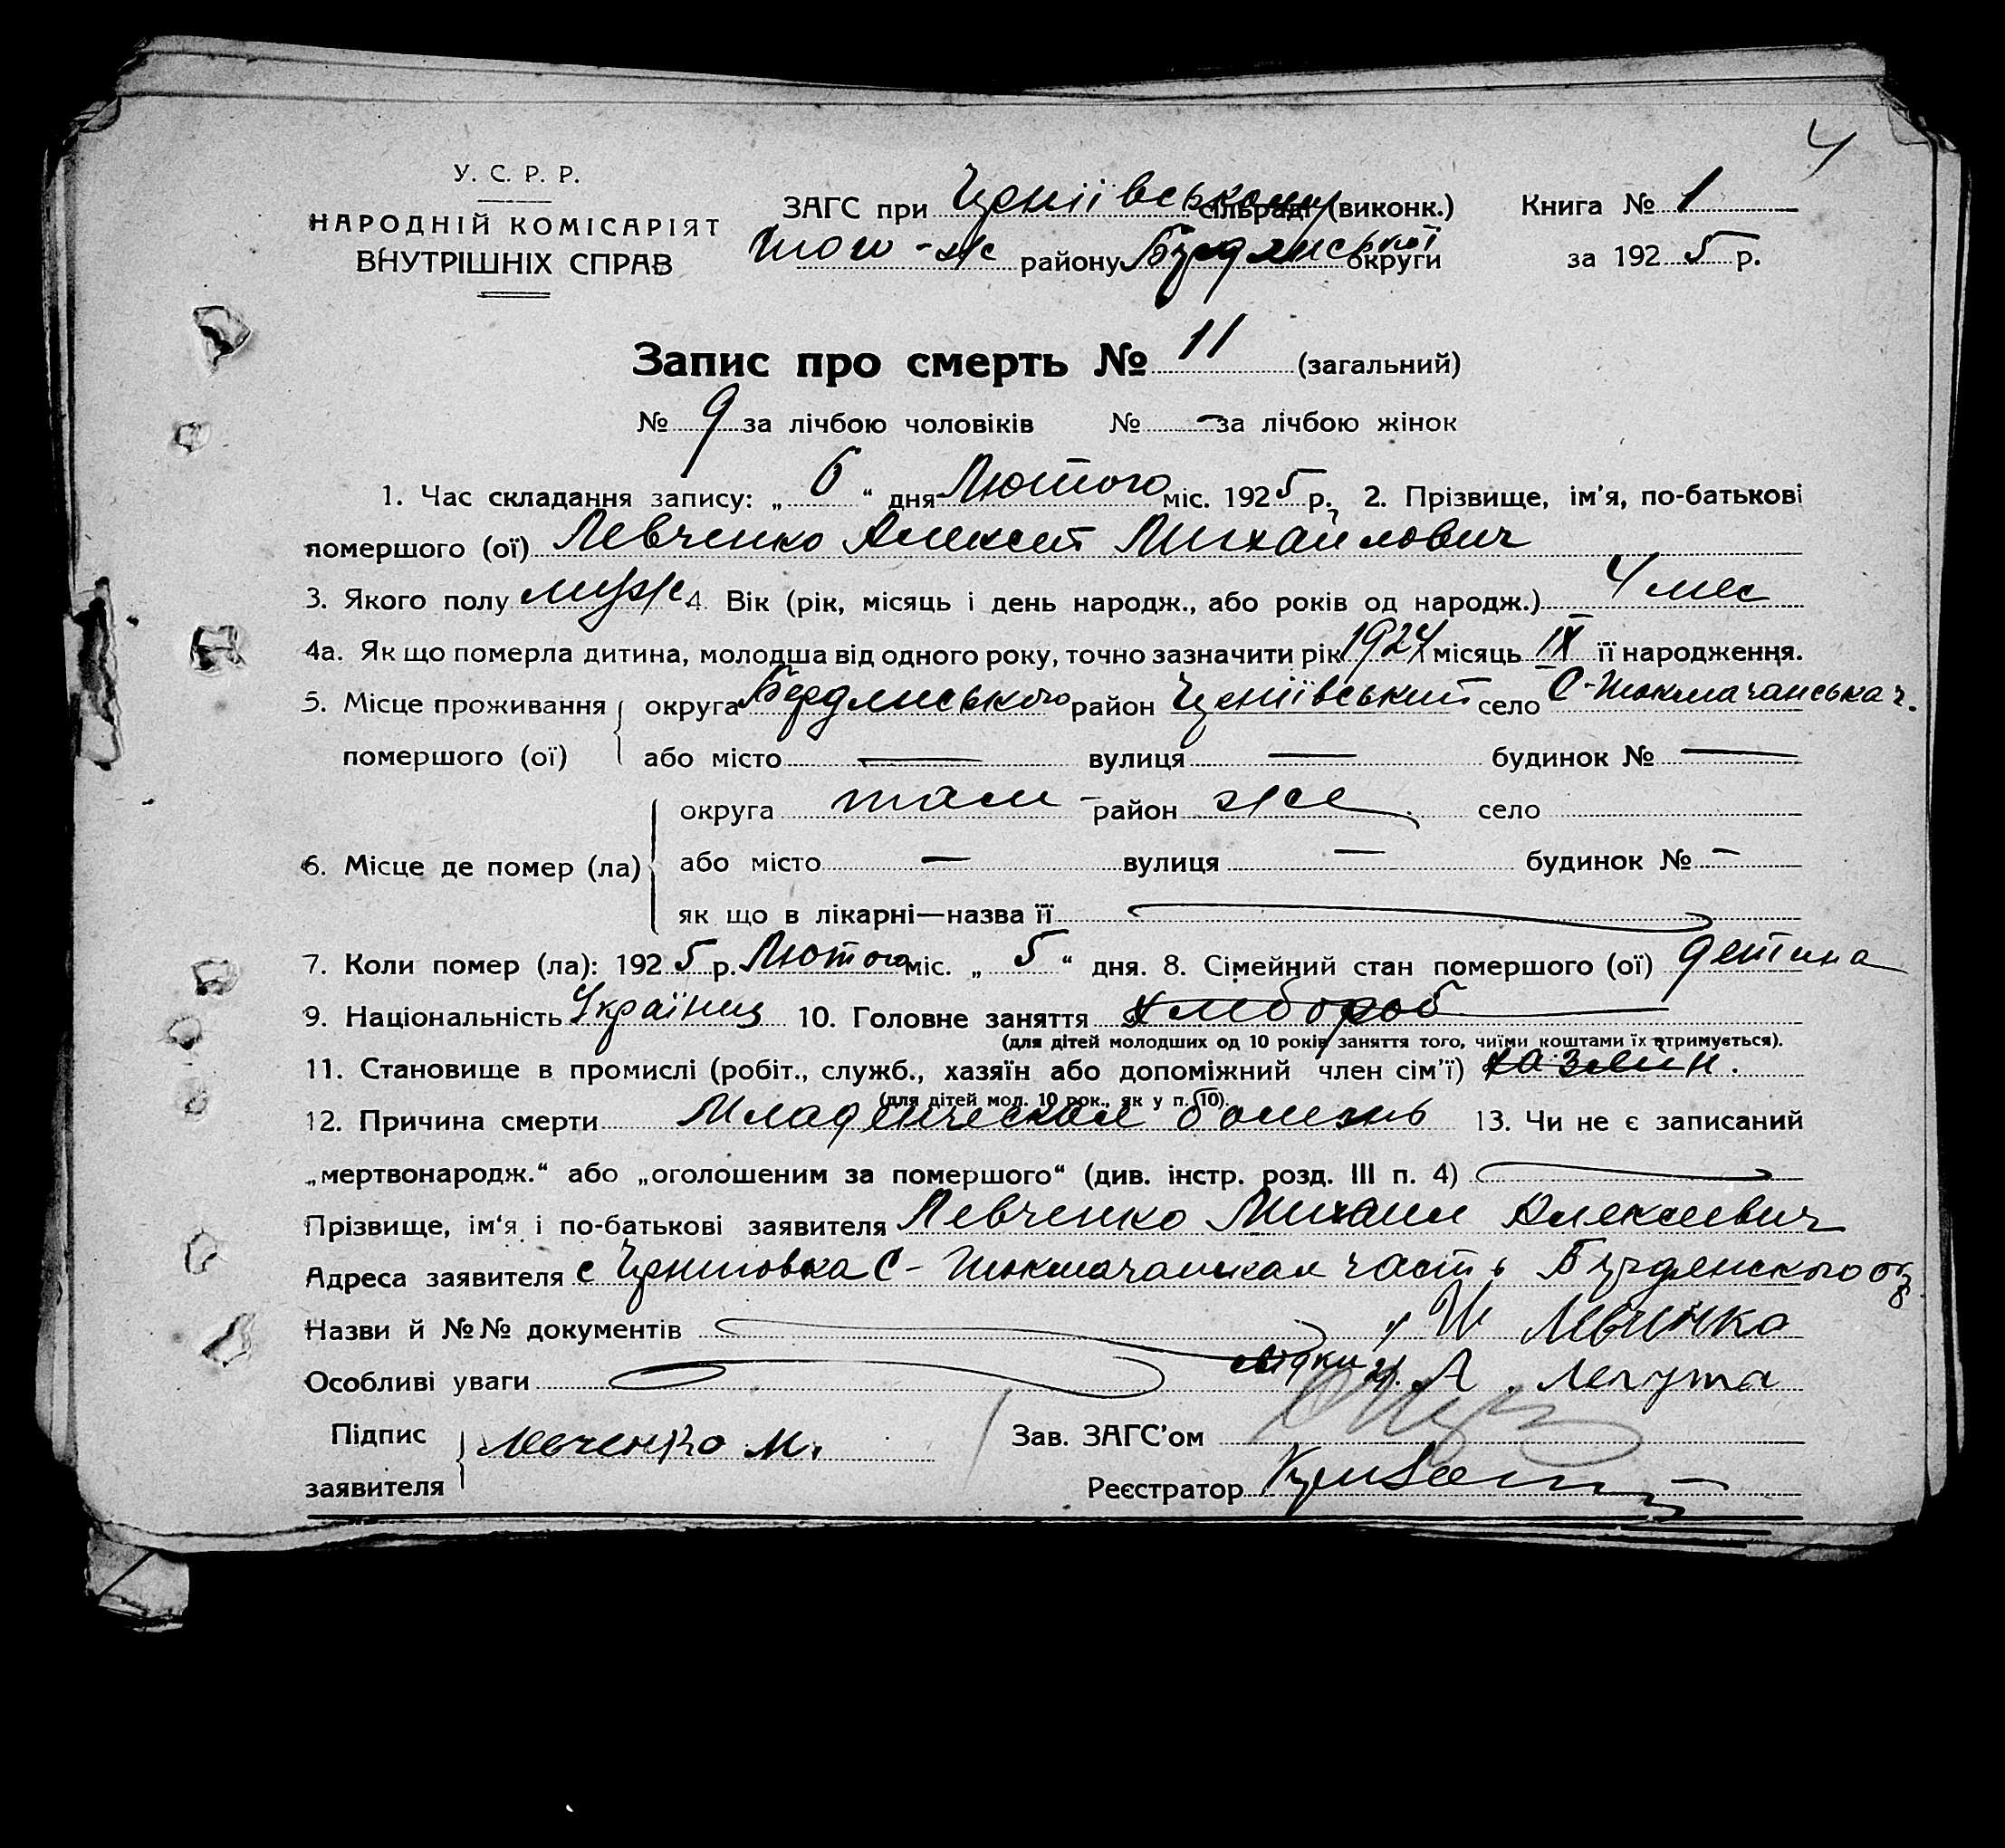 4
У. С. Р. Р.
НАРОДНІЙ КОМІСАРІЯТ
ВНУТРІШНІХ СПРАВ
ЗАГС при Черніівському сільраді (виконк.) Книга № 1
того-же району Бердянської округи за 1925 р.
Запис про смерть № 11 (загальний)
№ 9 за лічбою чоловіків № - за лічбою жінок
1. Час складання запису: „ 6 “ дня Лютого міс. 1925 р. 2. Прізвище, ім'я, по-батькові
помершого (ої) Левченко Алексей Михайлович
3. Якого полу муж. 4. Вік (рік, місяць і день народж., або років од народж.) 4 мес
4а. Як що померла дитина, молодша від одного року, точно зазначити рік 1924 місяць IX її народження.
5. Місце проживання округа Бердянського район Черніівський село С-Токмачанська ч.
помершого (ої) або місто — вулиця — будинок № —
округа там- район же село
6. Місце де помер (ла) або місто — вулиця — будинок № -
як що в лікарні—назва її
7. Коли помер (ла): 1925 р. Лютого міс. „ 5 “ дня. 8. Сімейний стан помершого (ої) детина
9. Національність Українец 10. Головне заняття хлебороб
(для дітей молодших од 10 років заняття того, чиїми коштами їх отримується).
11. Становище в промислі (робіт., служб., хазяїн або допоміжний член сім'ї) хазяин.
(для дітей мол. 10 рок., як у п. 10).
12. Причина смерти Младенческая болезнь 13. Чи не є записаний
„мертвонародж.“ або „оголошеним за помершого“ (див. інстр. розд. III п. 4)
Прізвище, ім'я і по-батькові заявителя Левченко Михаил Алексеевич
Адреса заявителя с Черниговка С-Токмачанская часть Бердянского окр
Назви й №№ документів Левченко
Особливі уваги свідки А. Легута
Підпис Левченко М. Зав. ЗАГС'ом
заявителя Реєстратор